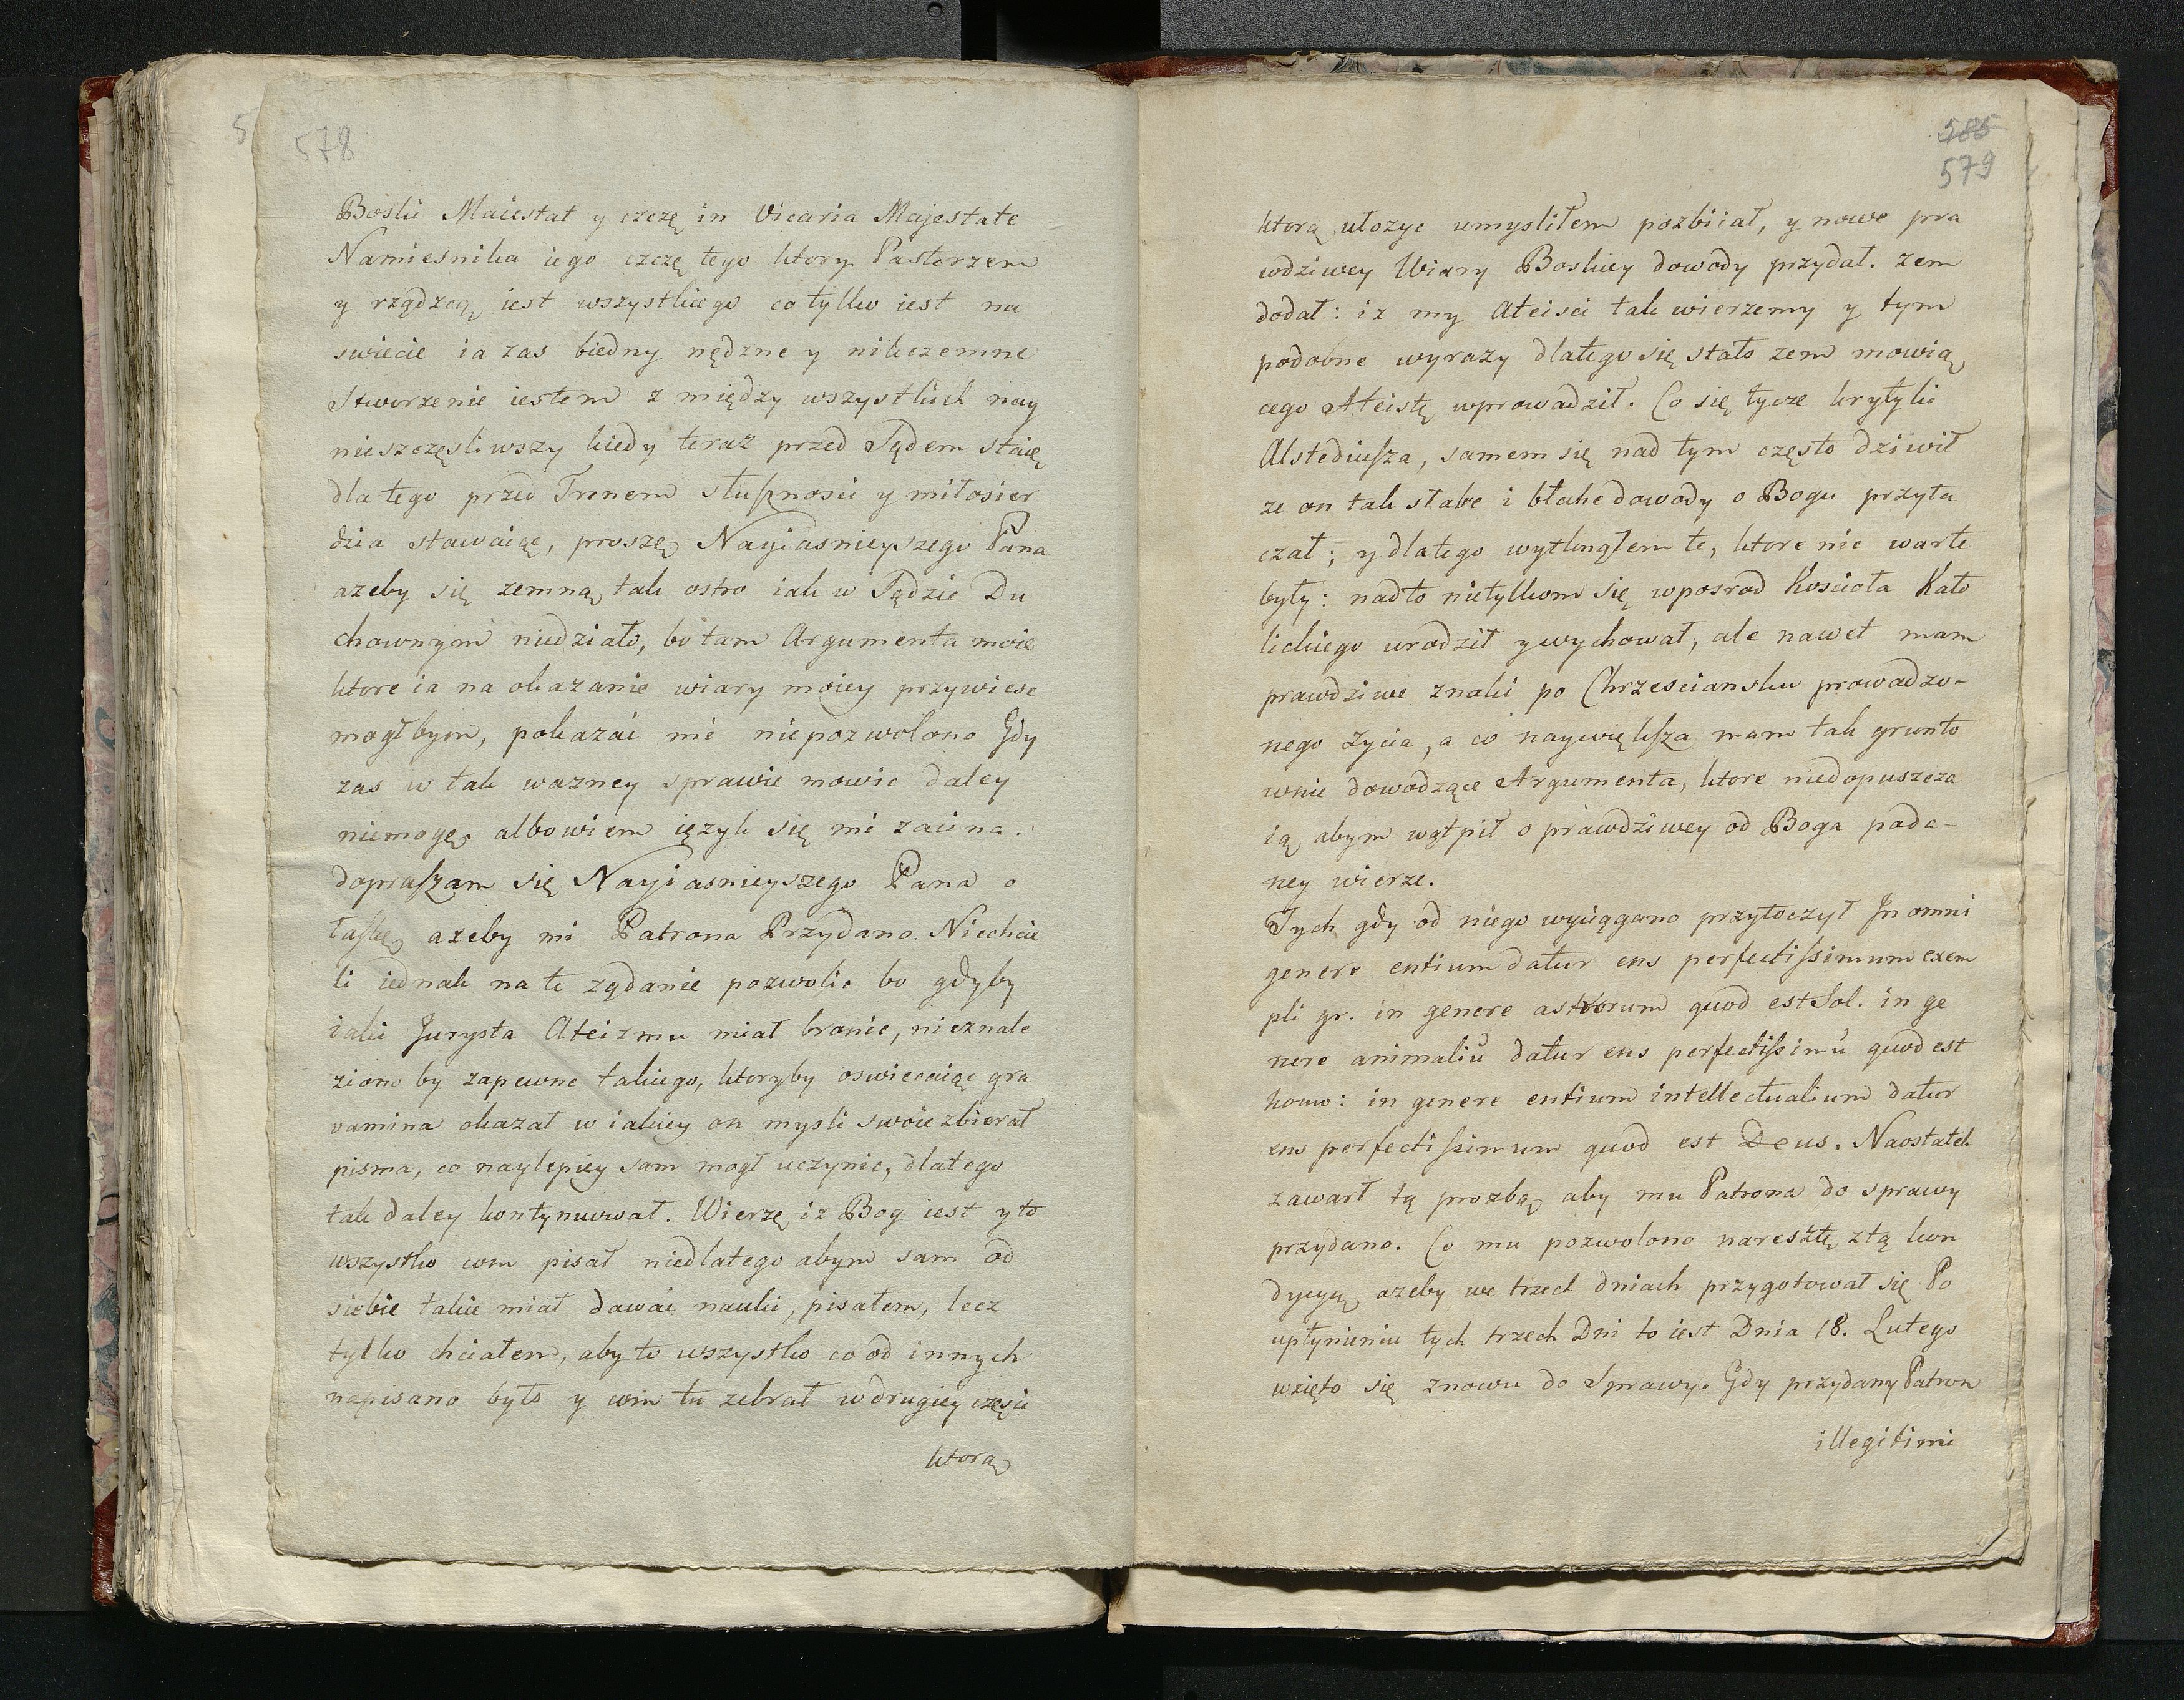 578
Boski Maiestat y czczę in Vicaria Majestate
Namiesnika iego czczę tego ktory Pasterzem
y rządzcą iest wszystkiego co tylko iest na
swiecie ia zas biedny nędzne y nikczemne
Stworzenie iestem z między wszystkich nay
nieszczęsliwszy kiedy teraz przed Sądem staię
dla tego przed Tronem słusznosci y miłosier
dzia stawaiąc, proszę Nayiasnieyszego Pana
azeby się zemną tak ostro iak w Sądzie Du
chownym niedziało, bo tam Argumenta moie
ktore ia na okazanie wiary moiey przywiesc
mogłbym, pokazać mi niepozwolono Gdy
zas w tak wazney sprawie mowic daley
niemogę, albowiem ięzyk się mi zacina.
dopraszam się Nayiasnieyszego Pana o
łaskę azeby mi Patrona Przydano. Niechcie
li iednak na te ządanie pozwolic bo gdyby
iaki Jurysta Ateizmu miał bronic, nieznale
ziono by zapewne takiego, ktoryby oswiecaiąc gra
vamina okazał w iakiey on mysli swoie zbierał
pisma, co naylepiey sam mogł uczynic, dlatego
tak daley kontynuował. Wierzę iz Bog iest y to
wszystko com pisał niedlatego abym sam od
siebie takie miał dawać nauki, pisałem, lecz
tylko chciałem, aby to wszystko co od innych
napisano było y com tu zebrał w drugiey częsci
ktorą
585
579
ktorą ułozyc umysliłem pozbiiał, y nowe pra
wdziwey Wiary Boskiey dowody przydał. zem
dodał: iz my Ateisci tak wierzemy y tym
podobne wyrazy dlatego się stało zem mowią
cego Ateistę wprowadził. Co się tycze krytyki
Alstediusza, samem się nad tym często dziwił
ze on tak słabe i błahe dowody o Bogu przyta
czał; y dlatego wytknąłem te, ktore nic warte
były: nadto nietylkom się wposrod Koscioła Kato
lickiego urodził y wychował, ale nawet mam
prawdziwe znaki po Chrzesciansku prowadzo-
nego zycia, a co naywiększa mam tak grunto
wnie dowodzące Argumenta, ktore niedopuszcza
ią abym wątpił o prawdziwey od Boga poda-
ney wierze.
Tych gdy od niego wyciągano przytoczył In omni
genere entium datur ens perfectissimum exem
pli gr. in genere astrorum quod est Sol. in ge
nere animaliū datur ens perfectissimū quod est
homo: in genere entium intellectualium datur
ens perfectissimum quod est Deus. Naostatek
zawarł tą prozbą aby mu Patrona do sprawy
przydano. Co mu pozwolono naresztę z tą kon
dycyą azeby we trzech dniach przygotował się Po
upłynieniu tych trzech Dni to iest Dnia 18. Lutego
wzięto się znowu do Sprawy. Gdy przydany Patron
illegitimi